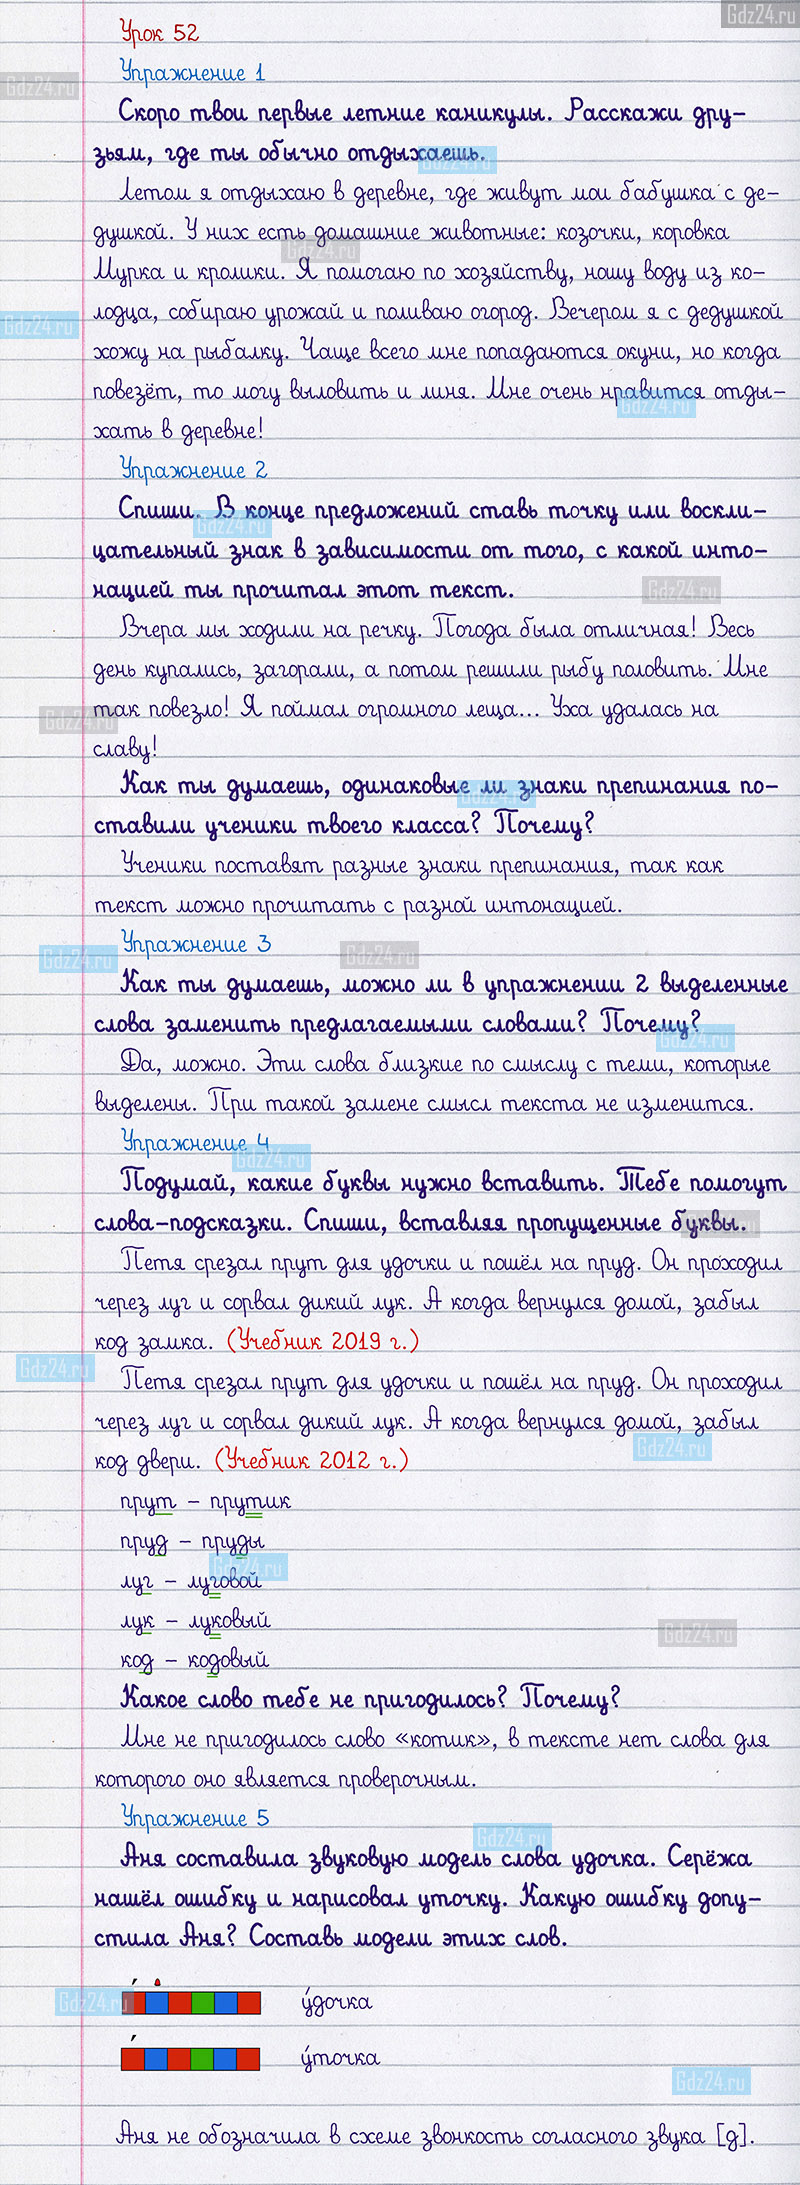 Gdz24.ru
Урок 52
Упражнение 1
Gdz24.ru
Скоро твои первые летние каникулы. Расскажи дру-
зьям, где ты обычно отдыхаешь.
Gdz24.ru
Летом я отдыхаю в деревне, где живут мои бабушка с де-
душкой. У них есть домашние животные: козочки, коровка
Gdz24.ru
Мурка и кролики. Я помогаю по хозяйству, ношу воду из ко-
лодца, собираю урожай и поливаю огород. Вечером я с дедушкой
Gdz24.ru
хожу на рыбалку. Чаще всего мне попадаются окуни, но когда
повезёт, то могу выловить и линя. Мне очень нравится отды-
Gdz24.ru
хать в деревне!
Упражнение 2
Спиши. В конце предложений ставь точку или воскли-
Gdz24.ru
цательный знак в зависимости от того, с какой инто-
нацией ты прочитал этот текст.
Gdz24.ru
Вчера мы ходили на речку. Погода была отличная! Весь
день купались, загорали, а потом решили рыбу половить. Мне
так повезло! Я поймал огромного леща... Уха удалась на
Gdz24.ru
славу!
Как ты думаешь, одинаковые ли знаки препинания по-
Gdz24.ru
ставили ученики твоего класса? Почему?
Ученики поставят разные знаки препинания, так как
текст можно прочитать с разной интонацией.
Упражнение 3
Gdz24.ru
Gdz24.ru
Как ты думаешь, можно ли в упражнении 2 выделенные
слова заменить предлагаемыми словами? Почему?
Gdz24.ru
Да, можно. Эти слова близкие по смыслу с теми, которые
выделены. При такой замене смысл текста не изменится.
Упражнение 4
Gdz24.ru
Подумай, какие буквы нужно вставить. Тебе помогут
слова-подсказки. Спиши, вставляя пропущенные буквы.
Gdz24.ru
Петя срезал прут для удочки и пошёл на пруд. Он проходил
через луг и сорвал дикий лук. А когда вернулся домой, забыл
код замка. (Учебник 2019 г.)
Gdz24.ru
Петя срезал прут для удочки и пошёл на пруд. Он проходил
через луг и сорвал дикий лук. А когда вернулся домой, забыл
Gdz24.ru
код двери. (Учебник 2012 г.)
прут – прутик
пруд – пруды
Gdz24.ru
луг – луговой
лук – луковый
Gdz24.ru
код – кодовый
Какое слово тебе не пригодилось? Почему?
Мне не пригодилось слово «котик», в тексте нет слова для
которого оно является проверочным.
Упражнение 5
Gdz24.ru
Аня составила звуковую модель слова удочка. Серёжа
нашёл ошибку и нарисовал уточку. Какую ошибку допу-
стила Аня? Составь модели этих слов.
Gdz24.ru
у́дочка
у́точка
Gdz24.ru
Аня не обозначила в схеме звонкость согласного звука [д].